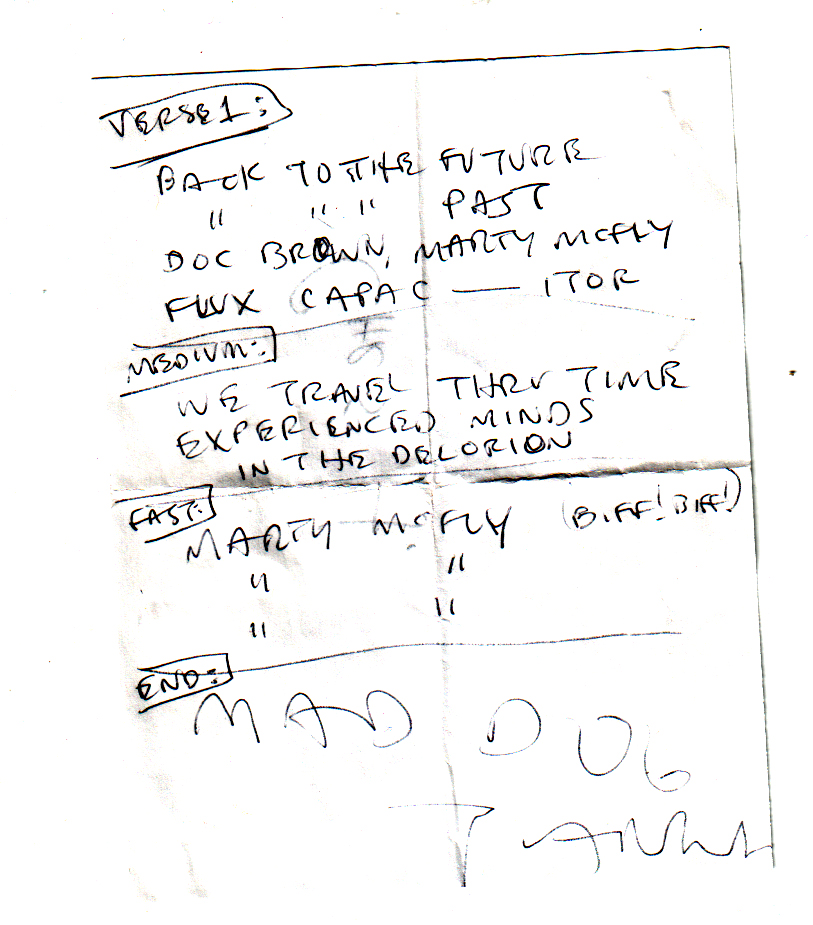 VERSE 1:
BACK TO THE FUTURE
" " " PAST
DOC BROWN, MARTY MCFLY
FLUX CAPAC — ITOR
MEDIUM:
WE TRAVEL THRU TIME
EXPERIENCED MINDS
IN THE DELORION
FAST:
MARTY MCFLY (BIFF! BIFF!)
" "
" "
END:
MAD DOG